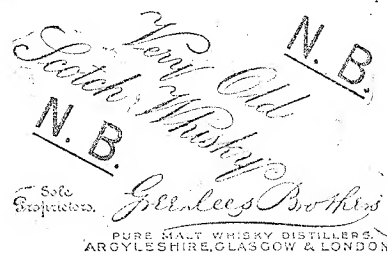 Very Old
Scotch Whisky
N. B.
N. B.
Sole
Proprietors.
Greenlees Brothers
PURE MALT WHISKY DISTILLERS,
ARGYLESHIRE, GLASGOW & LONDON